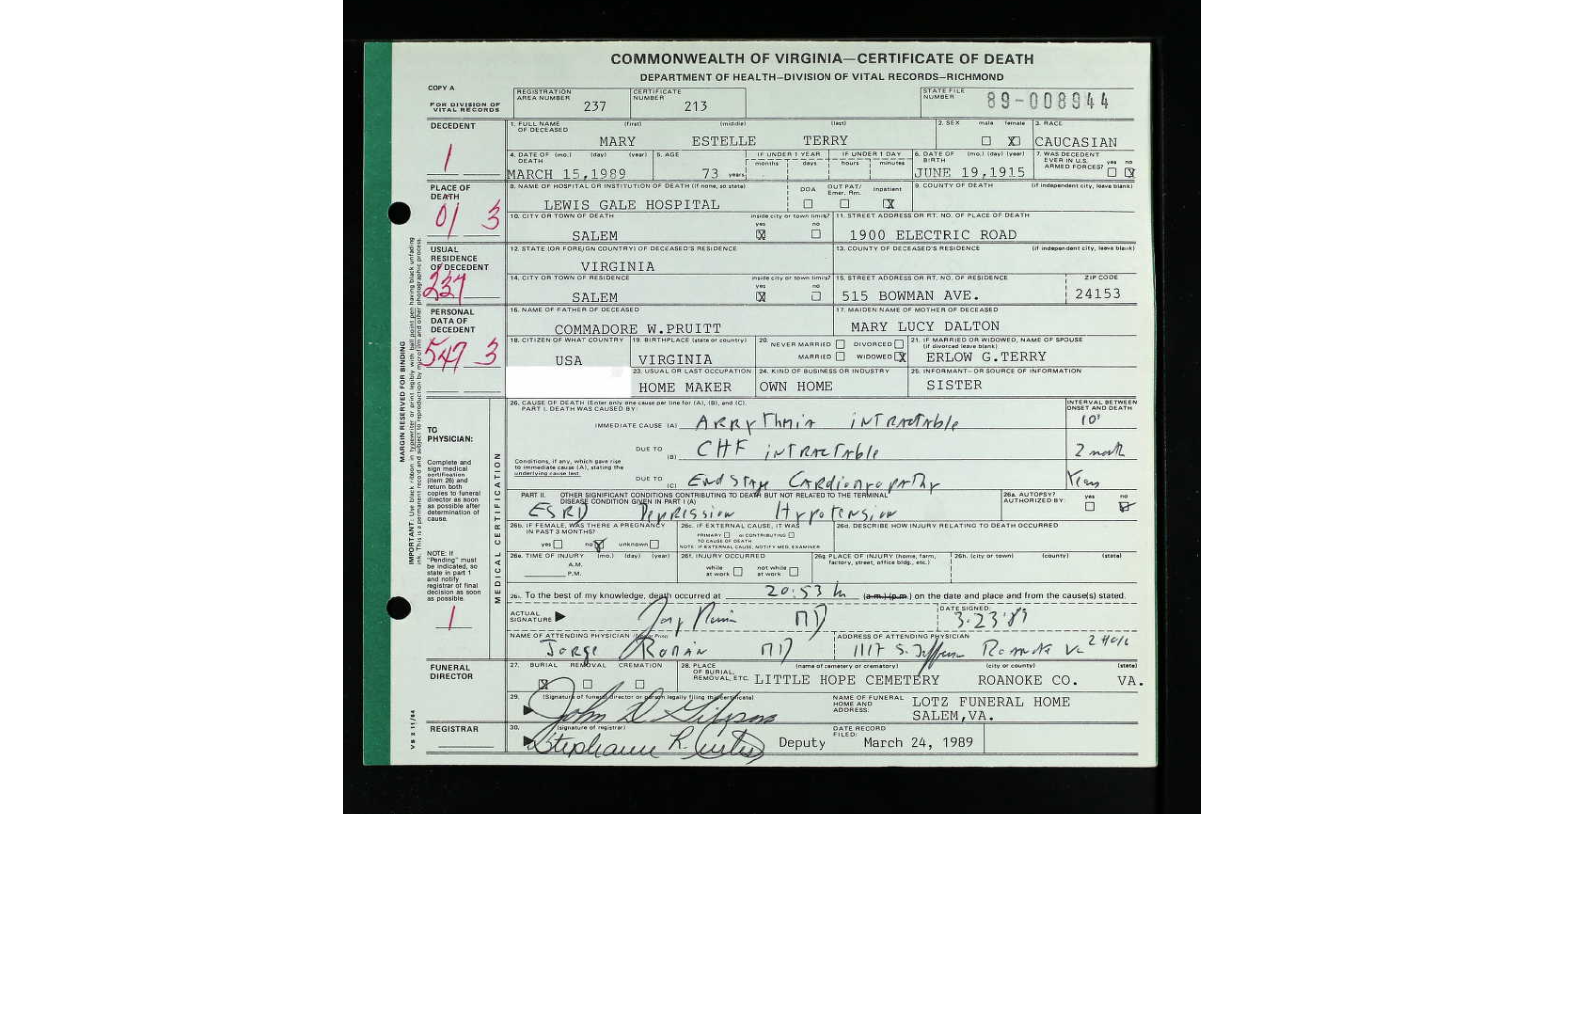 COMMONWEALTH OF VIRGINIA—CERTIFICATE OF DEATH
DEPARTMENT OF HEALTH–DIVISION OF VITAL RECORDS–RICHMOND
COPY A
FOR DIVISION OF VITAL RECORDS
REGISTRATION AREA NUMBER 237
CERTIFICATE NUMBER 213
STATE FILE NUMBER 89-008944
DECEDENT
1
1. FULL NAME OF DECEASED (first) (middle) (last)
MARY ESTELLE TERRY
2. SEX male female X
3. RACE
CAUCASIAN
4. DATE OF DEATH (mo.) (day) (year)
MARCH 15,1989
5. AGE
73 years
IF UNDER 1 YEAR months days
IF UNDER 1 DAY hours minutes
6. DATE OF BIRTH (mo.) (day) (year)
JUNE 19,1915
7. WAS DECEDENT EVER IN U.S. ARMED FORCES? yes no X
PLACE OF DEATH
01 3
8. NAME OF HOSPITAL OR INSTITUTION OF DEATH (if none, so state)
LEWIS GALE HOSPITAL
DOA OUTPAT/ Emer. Rm. Inpatient X
9. COUNTY OF DEATH (if independent city, leave blank)
10. CITY OR TOWN OF DEATH inside city or town limits? yes no
SALEM X
11. STREET ADDRESS OR RT. NO. OF PLACE OF DEATH
1900 ELECTRIC ROAD
USUAL RESIDENCE OF DECEDENT
237
12. STATE (OR FOREIGN COUNTRY) OF DECEASED'S RESIDENCE
VIRGINIA
13. COUNTY OF DECEASED'S RESIDENCE (if independent city, leave blank)
14. CITY OR TOWN OF RESIDENCE inside city or town limits? yes no
SALEM X
15. STREET ADDRESS OR RT. NO. OF RESIDENCE
515 BOWMAN AVE.
ZIP CODE
24153
PERSONAL DATA OF DECEDENT
547 3
16. NAME OF FATHER OF DECEASED
COMMADORE W.PRUITT
17. MAIDEN NAME OF MOTHER OF DECEASED
MARY LUCY DALTON
18. CITIZEN OF WHAT COUNTRY
USA
19. BIRTHPLACE (state or country)
VIRGINIA
20. NEVER MARRIED DIVORCED
MARRIED WIDOWED X
21. IF MARRIED OR WIDOWED, NAME OF SPOUSE (if divorced leave blank)
ERLOW G.TERRY
23. USUAL OR LAST OCCUPATION
HOME MAKER
24. KIND OF BUSINESS OR INDUSTRY
OWN HOME
25. INFORMANT–OR SOURCE OF INFORMATION
SISTER
MARGIN RESERVED FOR BINDING
TO PHYSICIAN:
Complete and sign medical certification (item 26) and return both copies to funeral director as soon as possible after determination of cause.
NOTE: If "Pending" must be indicated, so state in part 1 and notify registrar of final decision as soon as possible.
1
MEDICAL CERTIFICATION
26. CAUSE OF DEATH (Enter only one cause per line for (A), (B), and (C).
PART I. DEATH WAS CAUSED BY:
INTERVAL BETWEEN ONSET AND DEATH
IMMEDIATE CAUSE (A) Arrythmia intractable 10'
DUE TO (B) CHF intractable 2 month
Conditions, if any, which gave rise to immediate cause (A), stating the underlying cause last.
DUE TO (C) End Stage Cardiomyopathy Years
PART II. OTHER SIGNIFICANT CONDITIONS CONTRIBUTING TO DEATH BUT NOT RELATED TO THE TERMINAL DISEASE CONDITION GIVEN IN PART I (A)
ESRD Depression Hypotension
26a. AUTOPSY? AUTHORIZED BY: yes no
26b. IF FEMALE, WAS THERE A PREGNANCY IN PAST 3 MONTHS?
yes no unknown
26c. IF EXTERNAL CAUSE, IT WAS
PRIMARY or CONTRIBUTING
TO CAUSE OF DEATH
NOTE: IF EXTERNAL CAUSE, NOTIFY MED. EXAMINER
26d. DESCRIBE HOW INJURY RELATING TO DEATH OCCURRED
26e. TIME OF INJURY (mo.) (day) (year)
A.M.
P.M.
26f. INJURY OCCURRED
while at work not while at work
26g. PLACE OF INJURY (home, farm, factory, street, office bldg., etc.)
26h. (city or town) (county) (state)
26i. To the best of my knowledge, death occurred at 20:53 h (a.m.) (p.m.) on the date and place and from the cause(s) stated.
ACTUAL SIGNATURE MD
DATE SIGNED:
3-23-89
NAME OF ATTENDING PHYSICIAN
Jorge Roman MD
ADDRESS OF ATTENDING PHYSICIAN
1117 S. Jefferson Roanoke Va 24016
FUNERAL DIRECTOR
27. BURIAL REMOVAL CREMATION
X
28. PLACE OF BURIAL, REMOVAL, ETC. (name of cemetery or crematory) (city or county) (state)
LITTLE HOPE CEMETERY ROANOKE CO. VA.
29. (Signature of funeral director or person legally filing this certificate)
NAME OF FUNERAL HOME AND ADDRESS:
LOTZ FUNERAL HOME
SALEM,VA.
REGISTRAR
30. (signature of registrar)
Stephanie R. Deputy
DATE RECORD FILED:
March 24, 1989
VS 2 11/84